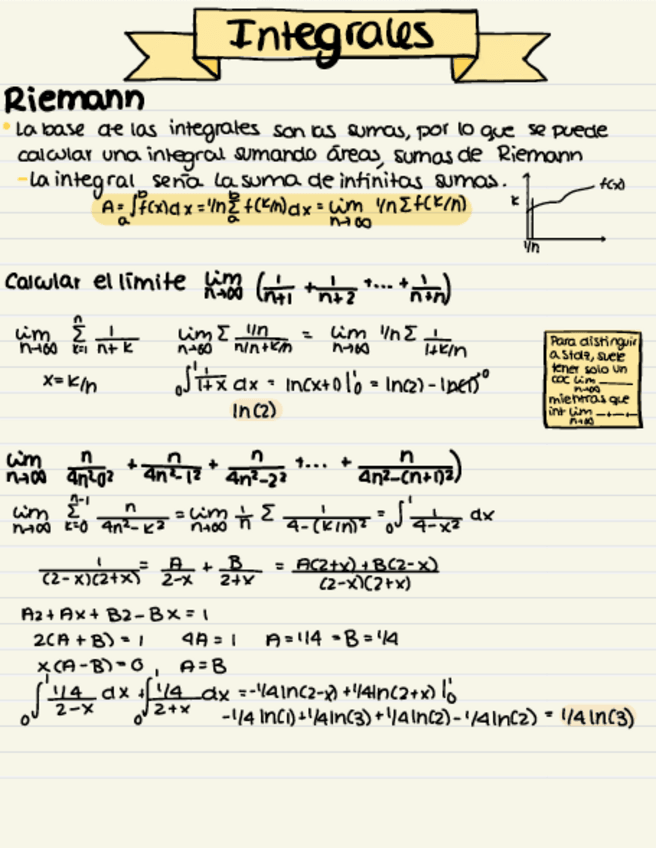 Integrales
Riemann
• La base de las integrales son las sumas, por lo que se puede
calcular una integral sumando áreas, sumas de Riemann
- la integral sería la suma de infinitas sumas.
A = ₐ∫ᵇ f(x)dx = 1/n Σ f(k/n)dx = lim n→∞ 1/n Σ f(k/n)
k f(x)
1/n
Calcular el límite lim n→∞ (1/(n+1) + 1/(n+2) + ... + 1/(n+n))
lim n→∞ Σ k=1 n 1/(n+k) lim n→∞ Σ (1/n)/(n/n+k/n) = lim n→∞ 1/n Σ 1/(1+k/n)
x = k/n ₀∫¹ 1/(1+x) dx = ln(x+0 |₀¹ = ln(2) - ln(1)⁰
ln(2)
Para distinguir
a Stolz, suele
tener solo un
coc lim n→∞ ____
mientras que
int lim n→∞ _+_+_
lim n→∞ n/(4n²-0² + n/(4n²-1² + n/(4n²-2² + ... + n/(4n²-(n+1)²)
lim n→∞ Σ k=0 n-1 n/(4n²-k²) = lim n→∞ 1/n Σ 1/(4-(k/n)²) = ₀∫¹ 1/(4-x²) dx
1/((2-x)(2+x)) = A/(2-x) + B/(2+x) = (A(2+x)+B(2-x))/((2-x)(2+x))
A2 + Ax + B2 - Bx = 1
2(A+B) = 1 4A = 1 A = 1/4 = B = 1/4
x(A-B) = 0, A = B
₀∫¹ (1/4)/(2-x) dx + ₀∫¹ (1/4)/(2+x) dx = -1/4 ln(2-x) + 1/4 ln(2+x) |₀¹
-1/4 ln(1) + 1/4 ln(3) + 1/4 ln(2) - 1/4 ln(2) = 1/4 ln(3)